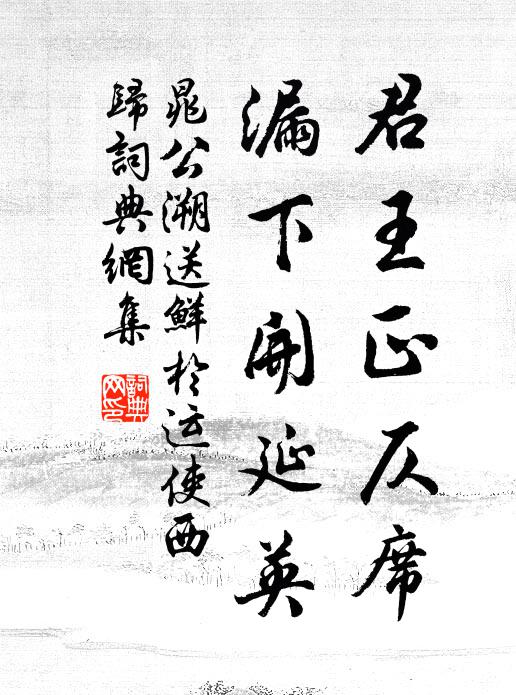 君王正仄席
漏下開延英
晁公溯送鮮於运使西
歸詞典網集
詞典
网印